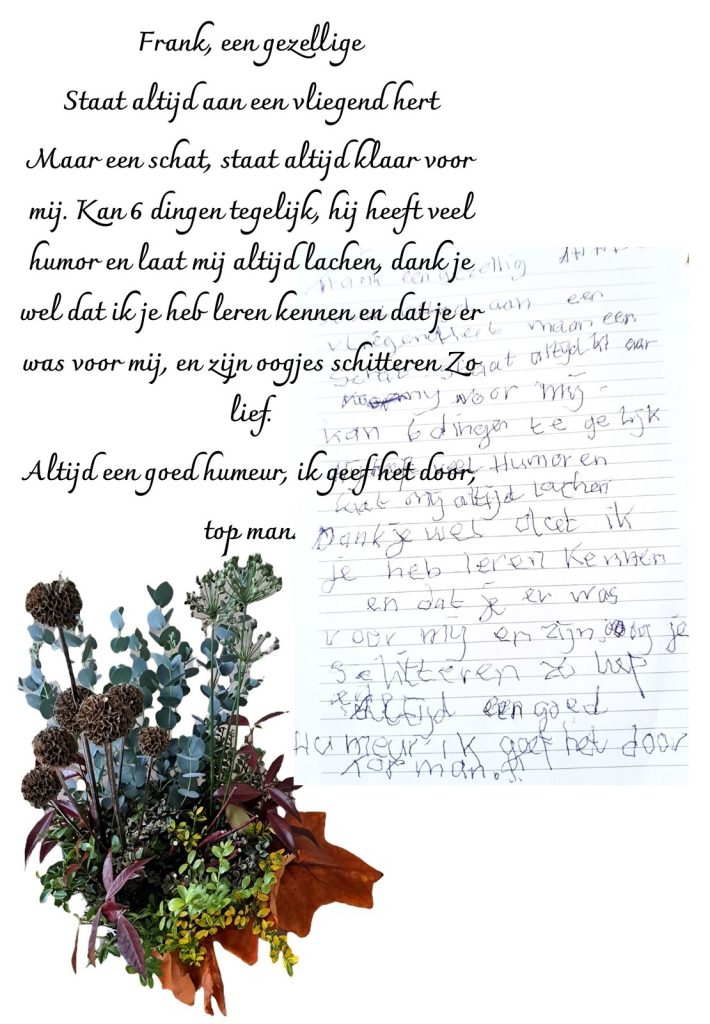 Frank, een gezellige
Staat altijd aan een vliegend hert
Maar een schat, staat altijd klaar voor
mij. Kan 6 dingen tegelijk, hij heeft veel
humor en laat mij altijd lachen, dank je
wel dat ik je heb leren kennen en dat je er
was voor mij, en zijn oogjes schitteren Zo
lief.
Altijd een goed humeur, ik geef het door,
top man.
een gezellig
aan een
maar een
staat altijd kl aar
voor mij -
kan 6 dingen te gelijk
veel Humor en
laat mij altijd lachen
Dankje wel dat ik
je heb leren kennen
en dat je er was
voor mij en zijn oogje
schitteren zo lief
Altijd een goed
Humeur ik geef het door
Top man.